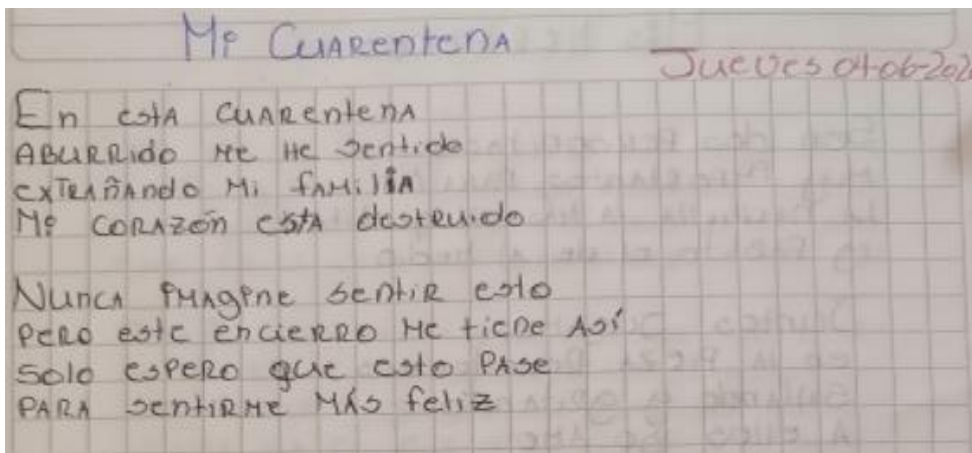 Mi Cuarentena
Jueves 04-06-202
En esta cuarentena
Aburrido me he sentido
extrañando mi familia
Mi corazón esta destruido
Nunca imagine sentir esto
Pero este encierro me tiene así
Solo espero que esto pase
Para sentirme más feliz